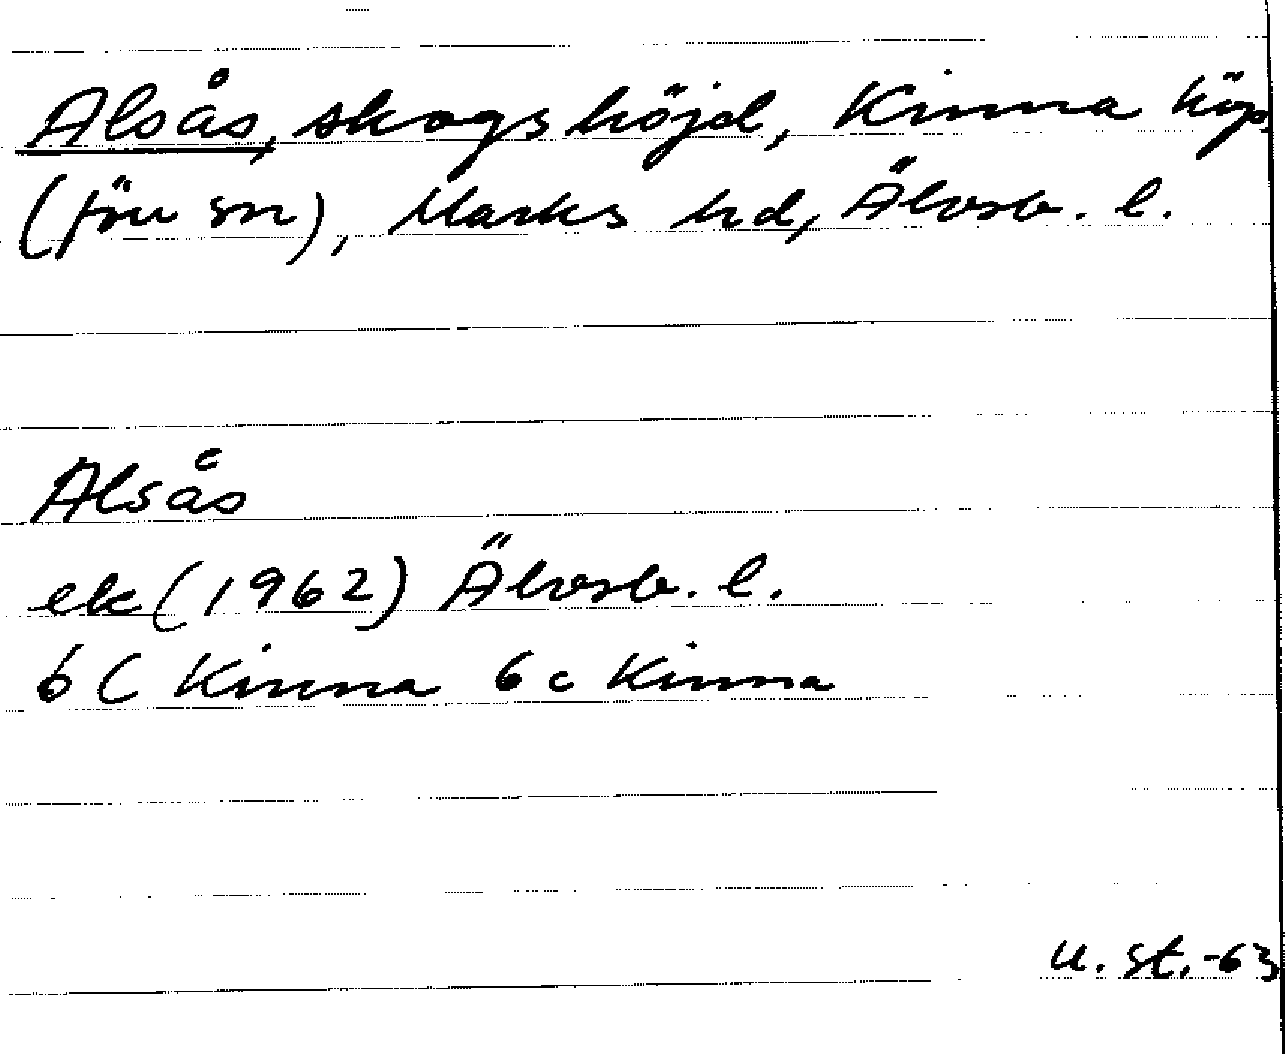 Alsås, skogshöjd, Kinna köp.
(förr sn), Marks hd, Älvsb. l.
Alsås
ek (1962) Älvsb. l.
6 C Kinna 6 c Kinna
u. st. -63